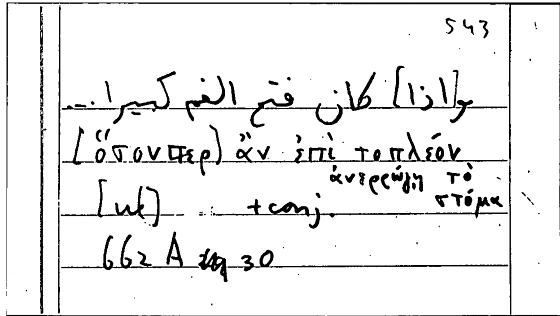 543
و[اذا] كان فتح الفم كبيرا...
[ὅσονπερ] ἂν ἐπὶ τοπλέον
ἀνερρώγη τὸ
στόμα
[ut] +conj.
662 A 30